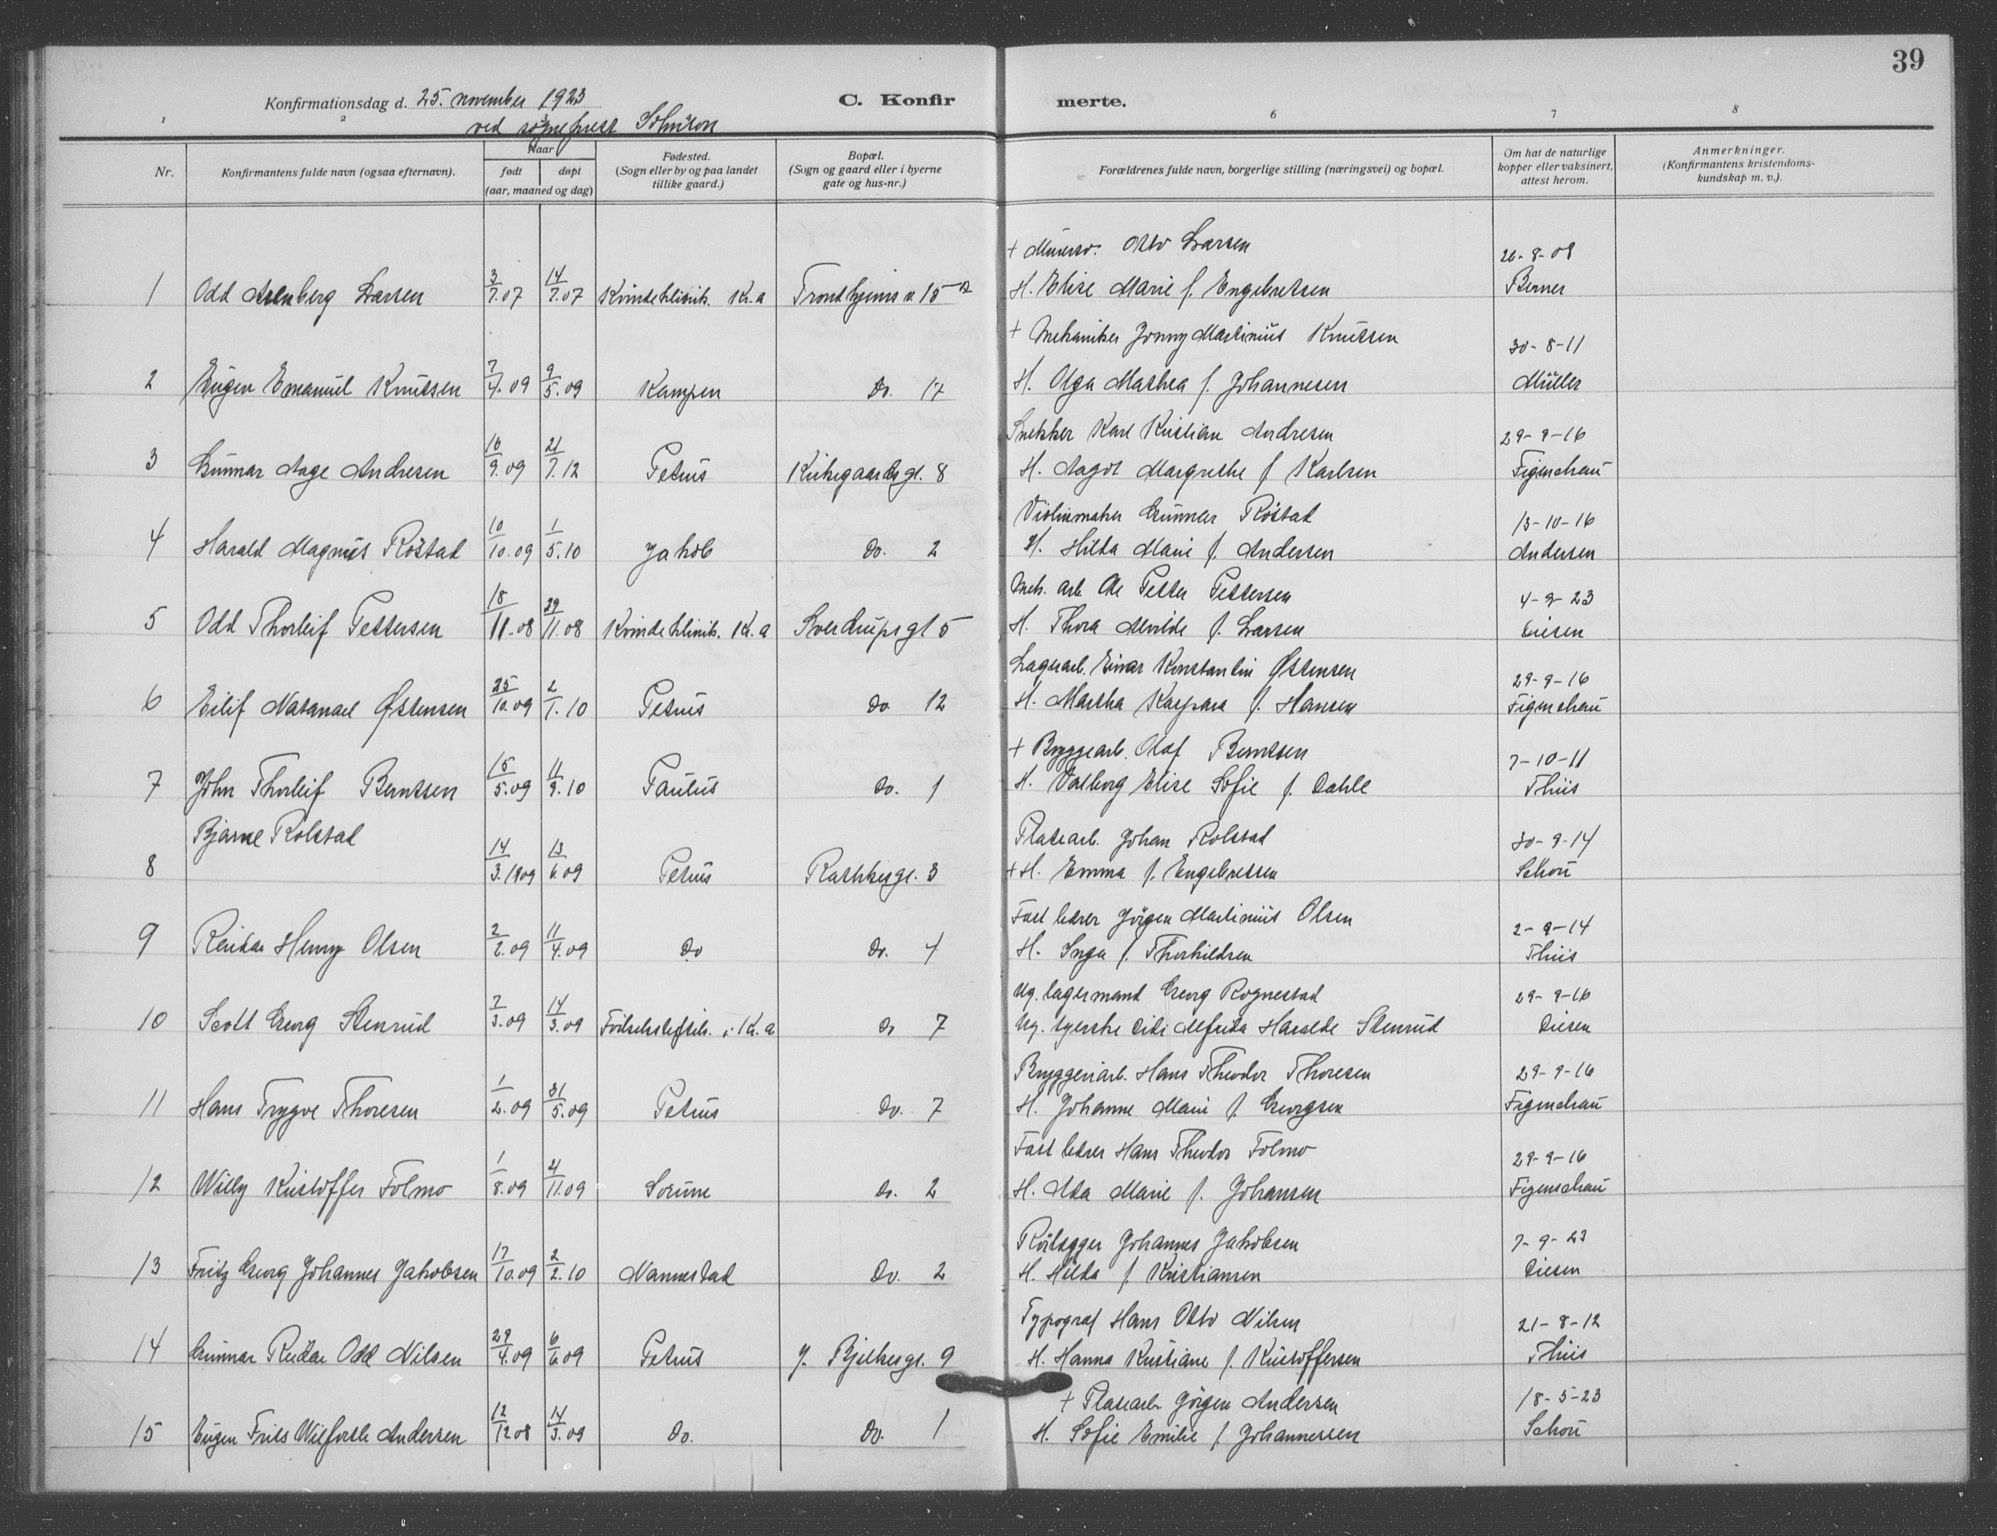 39
Konfirmationsdag d. 25. november 1923
C. Konfirmerte.
ved sogneprest
1 2 3 6 7 8
Nr. Konfirmantens fulde navn (ogsaa efternavn). Naar født døpt (aar, maaned og dag) Fødested. (Sogn eller by og paa landet tillike gaard.) Bopæl. (Sogn og gaard eller i byerne gate og hus-nr.) Forældrenes fulde navn, borgerlige stilling (næringsvei) og bopæl. Om hat de naturlige kopper eller vaksinert, attest herom. Anmerkninger. (Konfirmantens kristendoms-kundskap m. v.).
+ Murersv. Otto Larsen 26-8-08
1 Odd Arenberg Larsen 3/7.07 14/7.07 Kvindeklinik. Kr.a Trondhjems v. 15 H. Elise Marie f. Engebretsen Berner
+ Mekaniker Jonny Martinius Knutsen 30-8-11
2 Eugen Emanuel Knutsen 7/4.09 9/5.09 Kampen Do. 17 H. Olga Mathea f. Johannesen Müller
Snekker Karl Kristian Andresen 29-9-16
3 Gunnar Aage Andresen 16/9.09 21/7.12 Petrus Kirkegaardsgt. 8 H. Aagot Margrethe f. Karlsen Figenschau
Violinmaker Gunnar Røstad 13-10-16
4 Harald Magnus Røstad 10/10.09 1/5.10 Jakob Do. 2 H. Hilda Marie f. Andersen Andersen
Mek. arb. Ole Petter Pettersen 4-9-23
5 Odd Thorleif Pettersen 18/11.08 29/11.08 Kvindeklinik. Kr.a Sverdrupsgt 5 H. Thora Alvilde f. Larsen Diesen
Lagerarb. Einar Konstantin Østensen 29-9-16
6 Eilif Natanael Østensen 25/10.09 2/1.10 Petrus Do 12 H. Martha Kaspara f. Hansen Figenschau
+ Bryggearb. Olaf Berntsen 7-10-11
7 John Thorleif Berntsen 15/5.09 11/9.10 Paulus Do. 1 H. Valborg Elise Sofie f. Dahle Thiis
Bjarne Rolstad Platearb. Johan Rolstad 30-9-14
8 14/3.1909 13/6.09 Petrus Rathkesgt. 3 + H. Emma f. Engebretsen Schou
Fast bærer Jørgen Martinius Olsen 2-9-14
9 Reidar Henry Olsen 2/2.09 11/4.09 Do Do. 4 H. Inga f. Thorkildsen Thiis
Ug. lagermand Georg Rognestad 29-9-16
10 Scott Georg Stenrud 7/3.09 14/3.09 Fødselsstift. i Kr.a Do 7 Ug. syerske Didi Alfrida Haralde Stenrud Diesen
Bryggeriarb. Hans Theodor Thoresen 29-9-16
11 Hans Trygve Thoresen 1/2.09 31/5.09 Petrus Do. 7 H. Johanne Marie f. Georgsen Figenschau
Fast bærer Hans Theodor Folmo 29-9-16
12 Willy Kristoffer Folmo 1/8.09 21/11.09 Sørum Do. 2 H. Ada Marie f. Johansen Figenschau
Rørlægger Johannes Jakobsen 7-9-23
13 Fritz Georg Johannes Jakobsen 17/10.09 2/2.10 Nannestad Do. 2 H. Hilda f. Kristiansen Diesen
Typograf Hans Otto Nilsen 21-8-12
14 Gunnar Reidar Odd Nilsen 29/4.09 6/6.09 Petrus J. Bjelkesgt. 9 H. Hanna Kristiane f. Kristoffersen Thiis
+ Platearb Jørgen Andersen 18-5-23
15 Eugen Frits Andersen 12/12.08 14/3.09 Do. Do. 1 H. Sofie Emilie f. Johannessen Schou